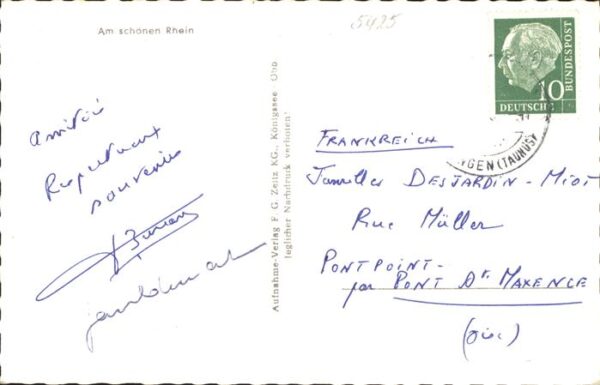 Am schönen Rhein
5425
Amitié
Respectueux
souvenirs
Aufnahme-Verlag F. G. Zeitz KG., Königssee Obb.
Jeglicher Nachdruck verboten!
10
DEUTSCHE
BUNDESPOST
GEN (TAUNUS)
FRANKREICH
Familles DESJARDIN - MIOT
Rue Müller
PONTPOINT -
par PONT Ste MAXENCE
(Oise)